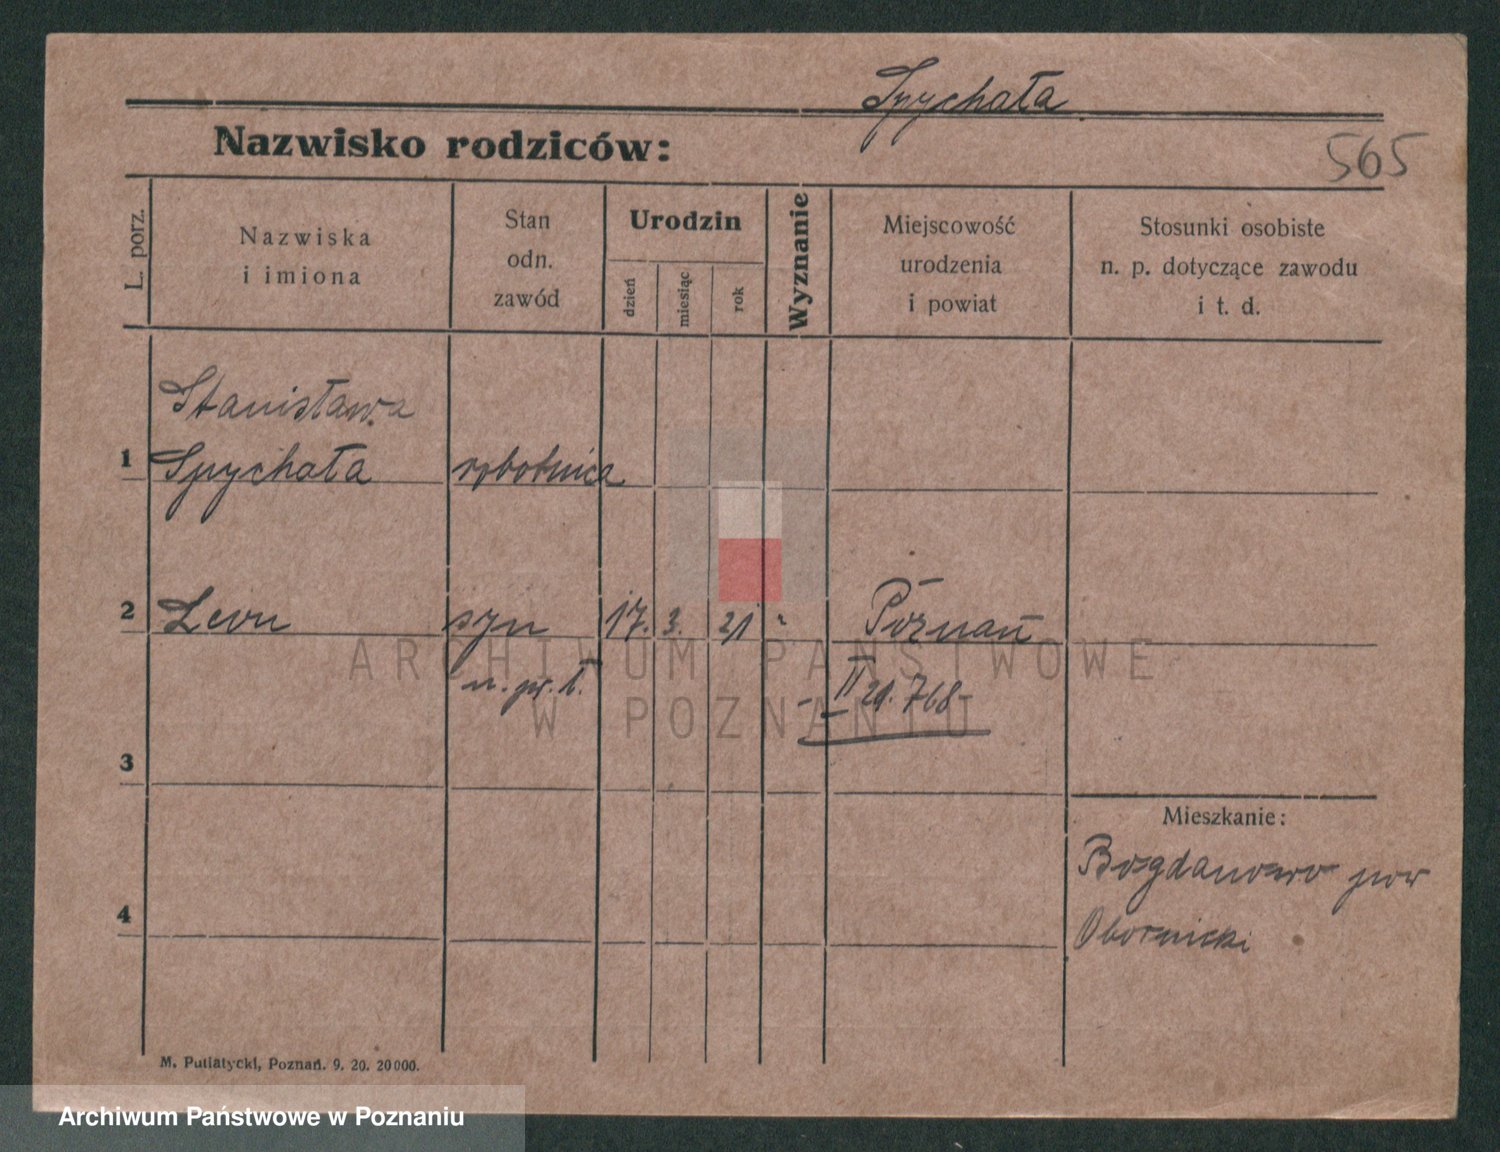 Spychała
Nazwisko rodziców:
565
L. porz.
Nazwiska
i imiona
Stan
odn.
zawód
Urodzin
dzień
miesiąc
rok
Wyznanie
Miejscowość
urodzenia
i powiat
Stosunki osobiste
n. p. dotyczące zawodu
i t. d.
Stanisława
1 Spychała robotnica
2 Leon syn 17. 3. 21 Poznań
II 21.768
3
Mieszkanie:
Bogdanowo pow
Obornicki
4
M. Putiatycki, Poznań. 9. 20. 20000.
ARCHIWUM PAŃSTWOWE
W POZNANIU
Archiwum Państwowe w Poznaniu